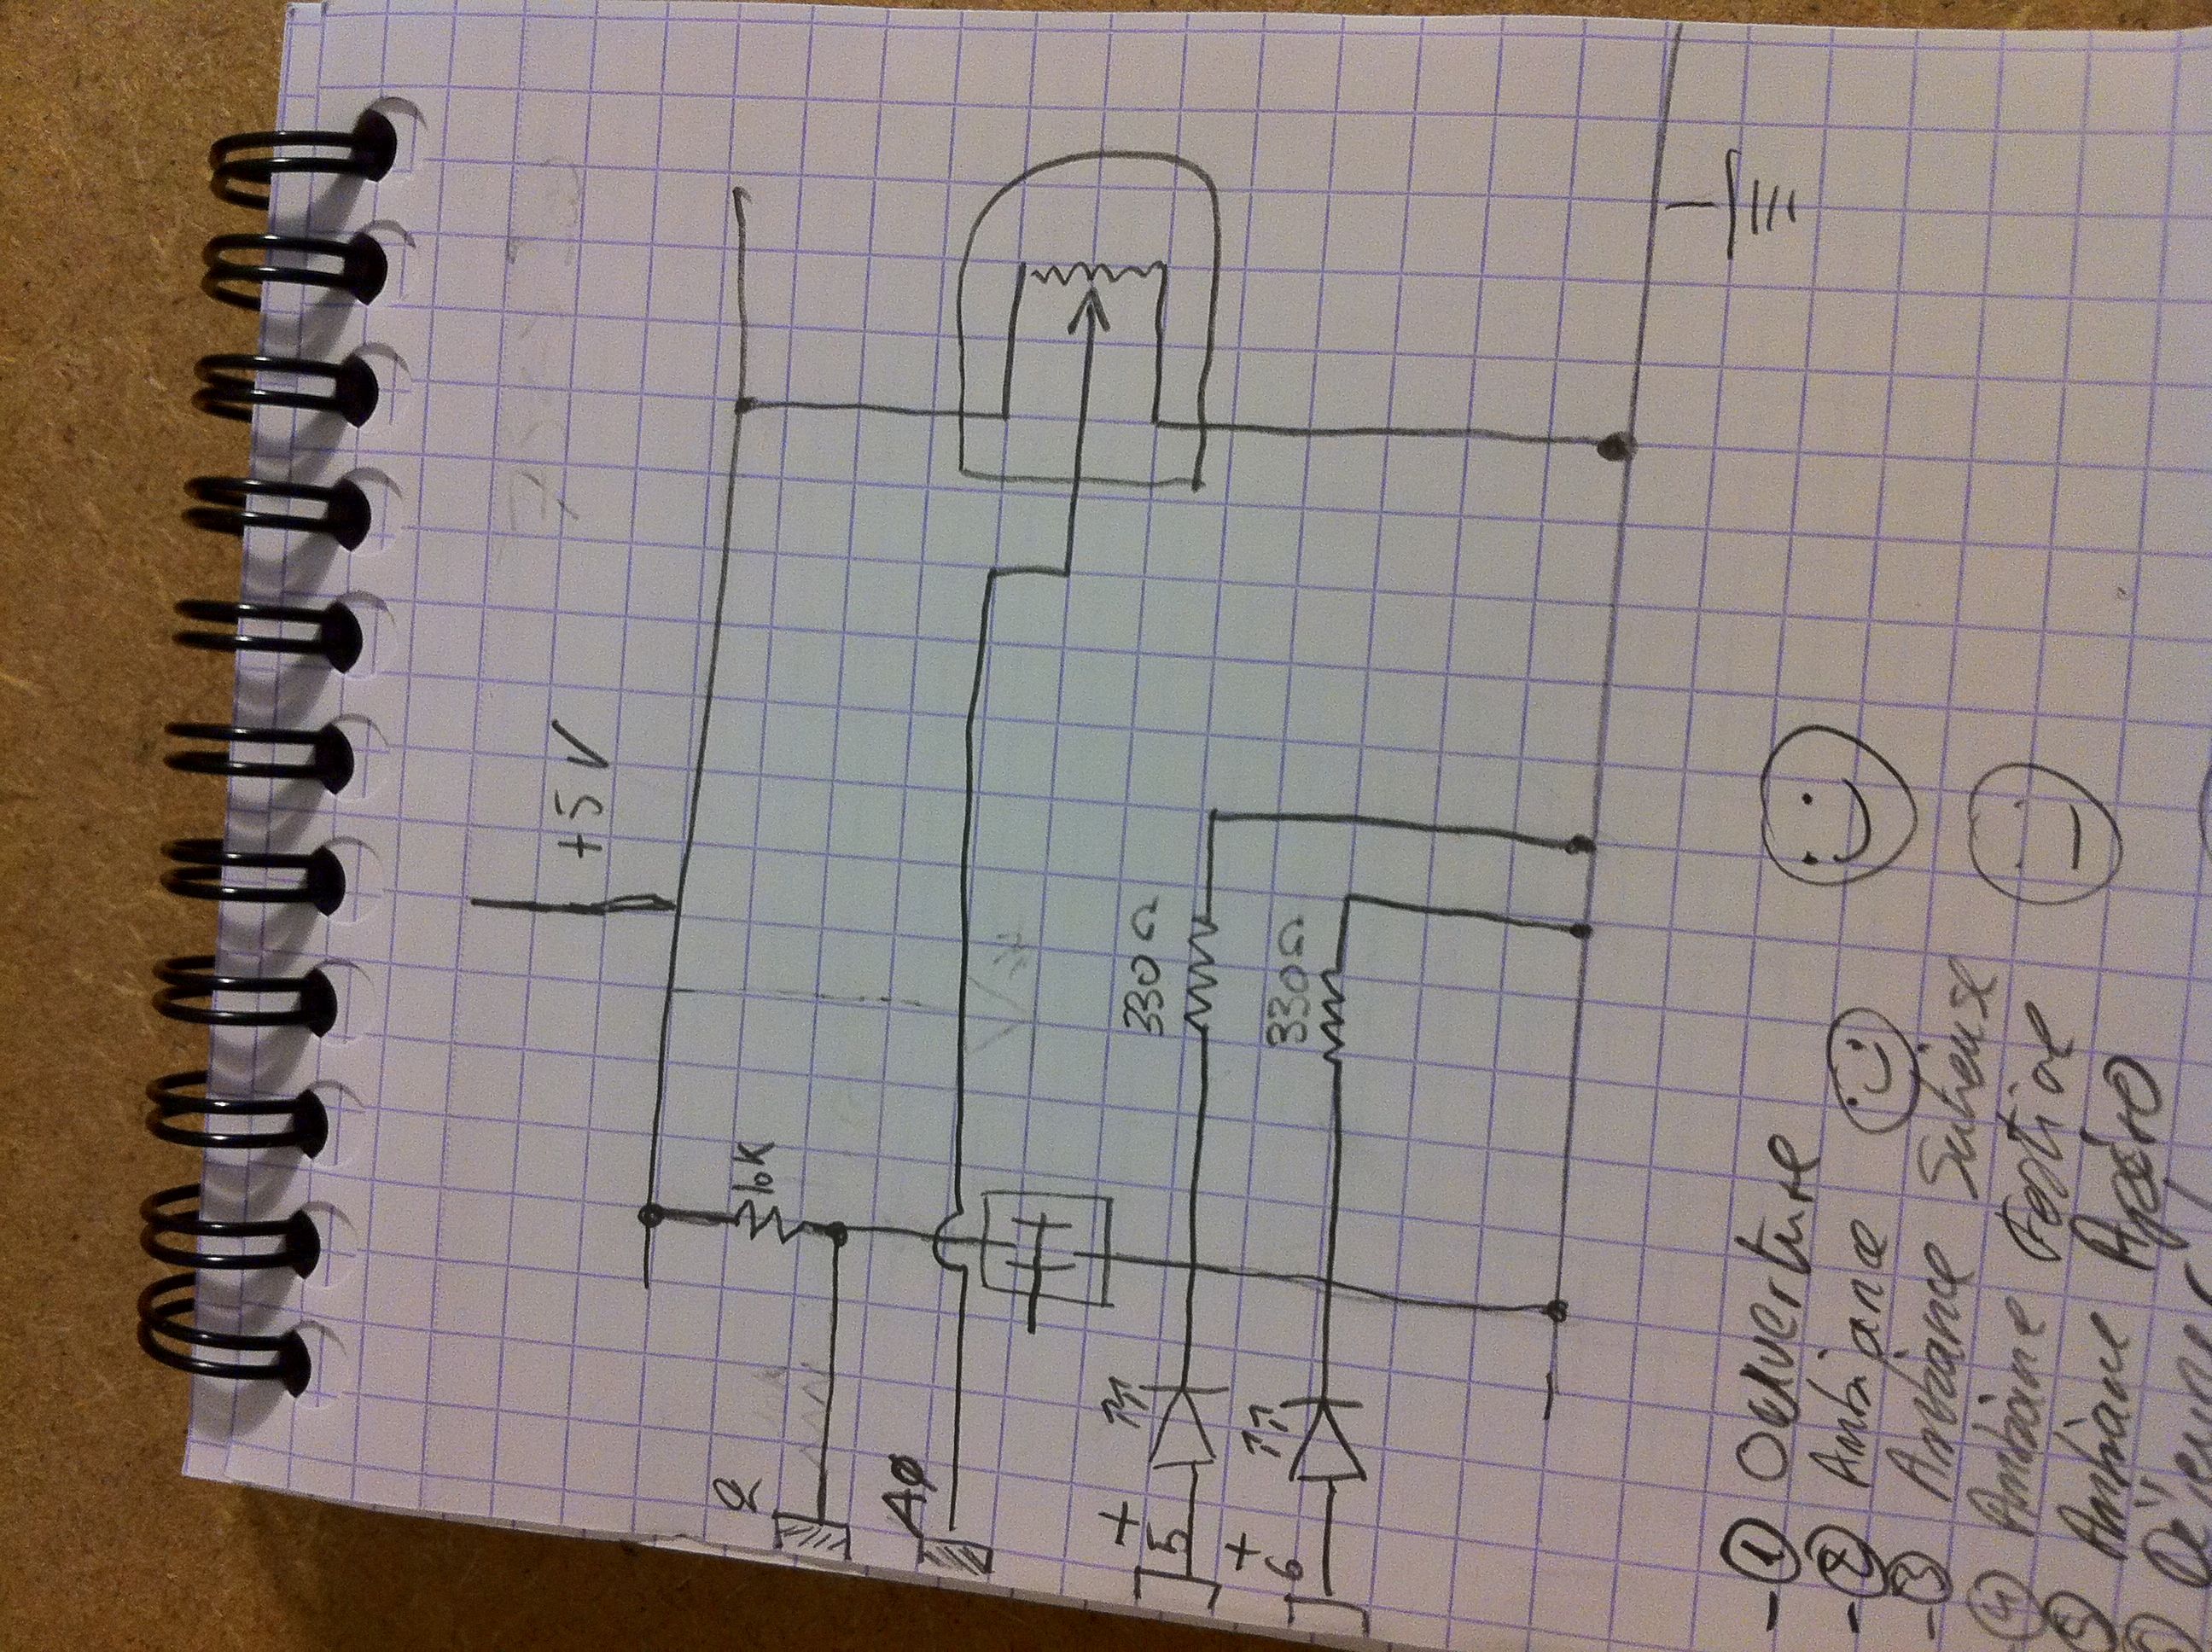 +5V
10K
2
AØ
+
5
330Ω
+
6
330Ω
-① Ouverture
-② Ambiance
-③ Ambiance Sérieuse
④ Ambiance Festive
⑤ Ambiance Apéro
Déjeuner